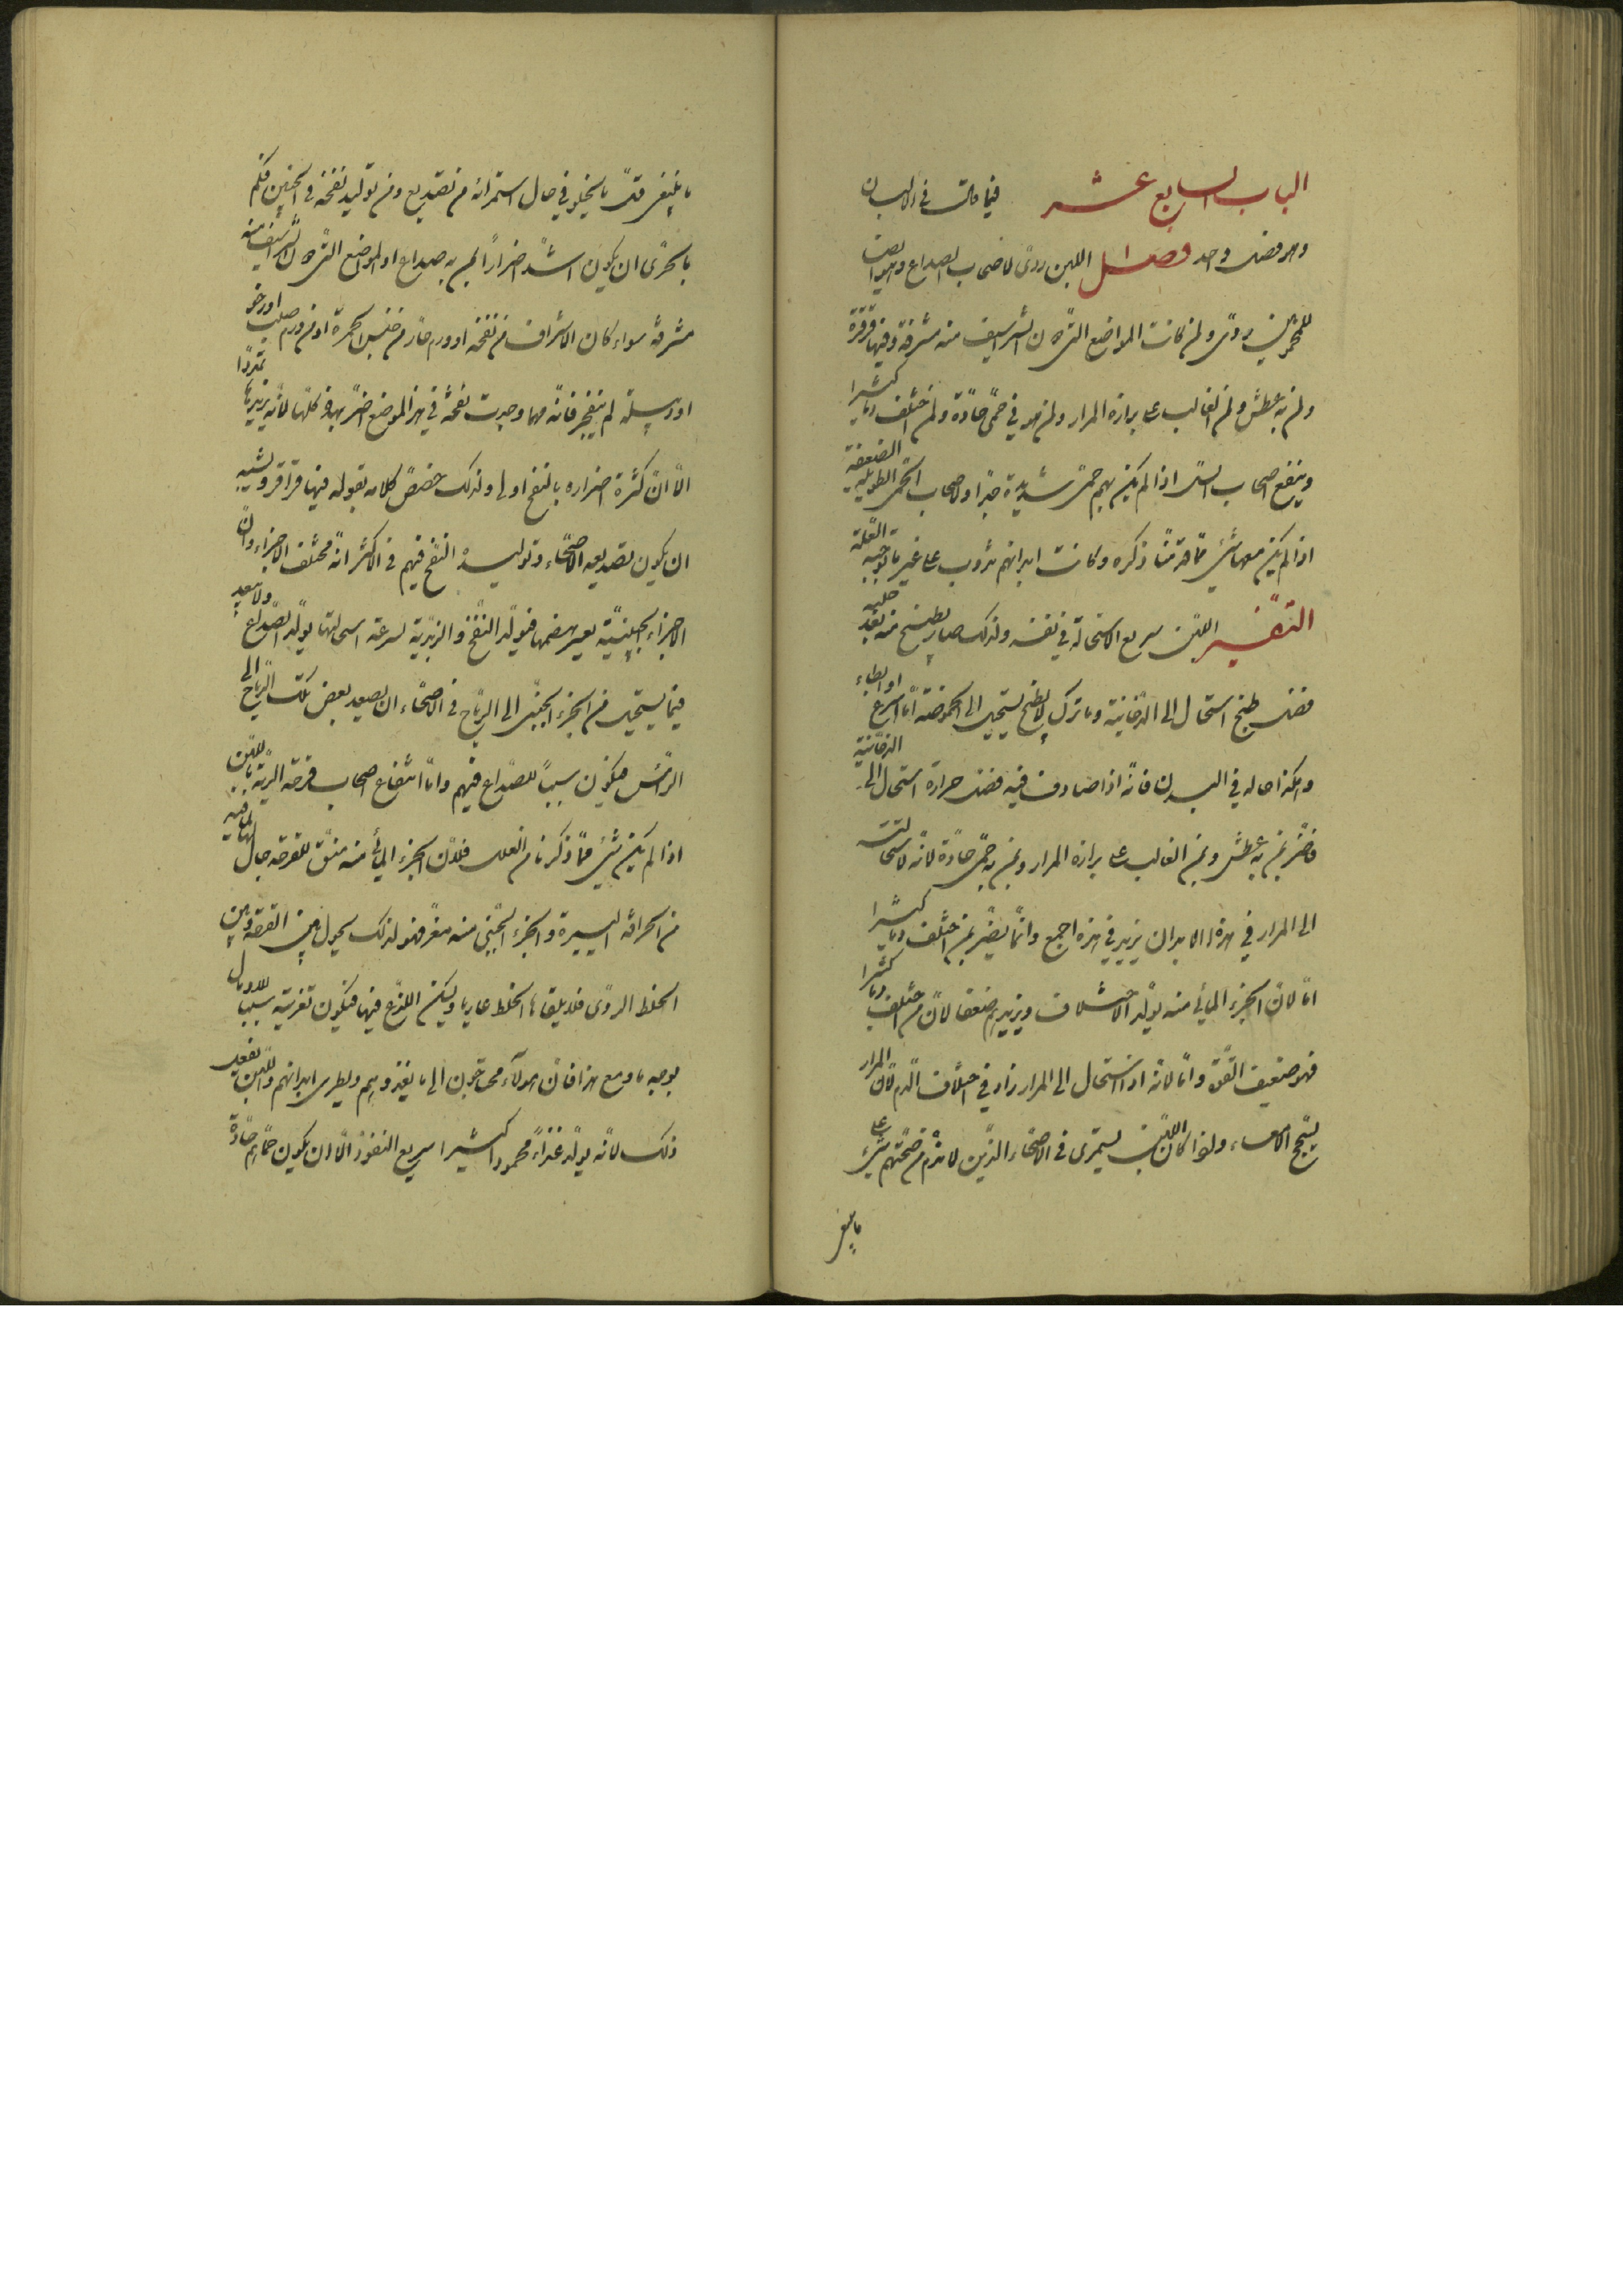 الباب السابع عشر فيما قال في الالبان
وهو فصل واحد فصل اللبن ردى لاصحاب الصداع وهو ايضا
للمحمومين ردى ولمن كانت المواضع التى دون الشراسيف منه مشرفة وفيها قرقرة
ولمن به عطش ولمن الغالب على برازه المرار ولمن هو في حمى حادة ولمن اختلف دما كثيرا
وينفع اصحاب السل اذا لم يكن بهم حمى شديدة جدا ولاصحاب الحمى الطويلة الضعيفة
اذا لم يكن معها شئ مما قدمنا ذكره وكانت ابدانهم تذوب على غير ما توجبه العلة
التفسير اللبن سريع الاستحالة في نفسه ولذلك صار يطبخ منه بعد حلبه
فضل طبخ استحال الى الدخانية وما ترك بلا طبخ يستحيل الى الحموضة اما اسرع او ابطاء
وهكذا حاله في البدن فانه اذا صادف فيه فضل حرارة استحال الى الدخانية
فاضر بمن به عطش وبمن الغالب على برازه المرار وبمن به حمى حادة لانه لاستحالته
الى المرار في هذه الابدان يزيد في هذه اجمع وانما يضر بمن اختلف دما كثيرا
اما لان الجزء المائي منه يولد الاختلاف ويزيدهم ضعفا لان من اختلف دما كثيرا
فهو ضعيف القوة واما لانه اذا استحال الى المرار زاد في اختلاف الدم لان المرار
يسحج الامعاء ولما كان اللبن يستمرى في الاصحاء الذين لا يذم من صحتهم شئ على
ما ينبغى
ما ينبغى قل ما يخلو في حال استمرائه من تصديع ومن توليد نفخة في الجنبين فكم
بالحرى ان يكون اشد اضرارا بمن به صداع او المواضع التى دون الشراسيف منه
مشرفة سواء كان الاشراف من نفخة او ورم حار من جنس الحمرة او من ورم صلب او رخو
او دبيلة لم تنفجر فانه مهما وجدت نفخة في هذا الموضع اضر بها وكلها لانه يزيدها تمددا
الا ان كثرة اضراره بالنفخ اولى ولذلك خصص كلامه بقوله فيها قراقر ويشبه
ان يكون تصديعه الاصحاء وتوليده النفخ فيهم في الاكثر انه مختلف الاجزاء وان
الاجزاء الجبنية يعسر هضمها فيولد النفخ والزبدية لسرعة استحالتها يولد الصداع ولا يبعد
فيما يستحيل من الجزء الجبنى الى الرياح في الاصحاء ان يصعد بعض تلك الرياح الى
الراس فيكون سببا للصداع فيهم واما انتفاع اصحاب قرحة الرية باللبن
اذا لم يكن شئ مما ذكرنا من العلل فلان الجزء المائي منه منق للقرحة جال لها لما فيه
من الحرافة اليسيرة والجزء الجبنى منه مغر فهو لذلك يحول بين القرحة وبين
الخلط الردى فلا يلقاها الخلط عاريا ويسكن اللذع فيها فيكون تغريته سببا للاندمال
بوجه ما ومع هذا فان هولآء محتاجون الى ما يغذوهم ويطرى ابدانهم واللبن يفعل
ذلك لانه يولد غذاء محمودا كثيرا سريع النفوذ الا ان يكون حماهم حادة